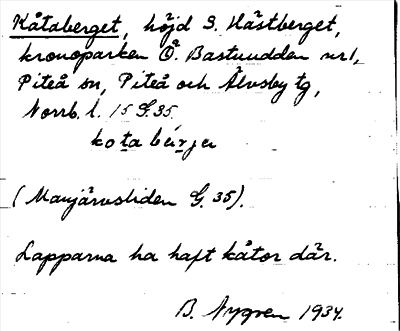 Kåtaberget, höjd S. Hästberget,
kronoparken Ö. Bastuudden nr 1,
Piteå sn, Piteå och Älvsby tg,
Norrb. l. 15 G. 35.
kota bérjer
(Manjärvsliden G. 35).
Lapparna ha haft kåtor där.
B. Nygren 1934.